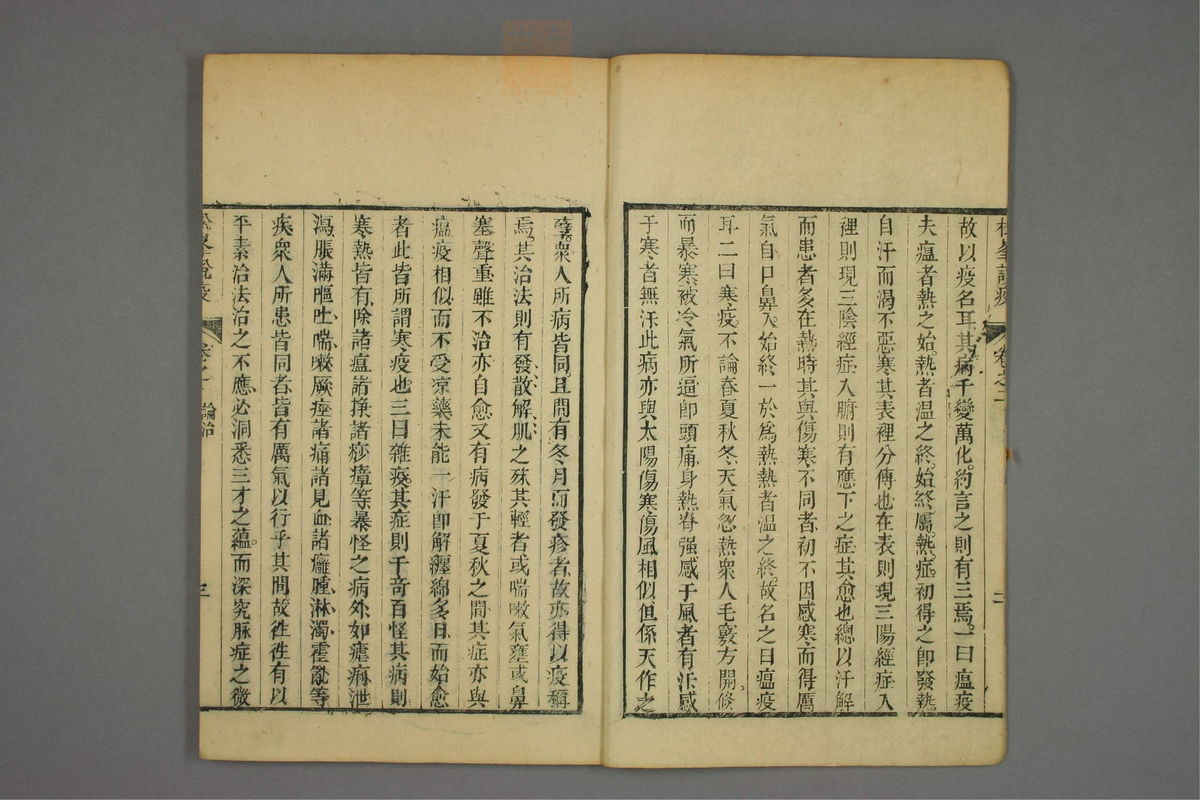 松峯說疫 卷之二 二
故以疫名耳其病千變萬化約言之則有三焉一曰瘟疫
夫瘟者熱之始熱者温之終始終屬熱症初得之卽發熱
自汗而渴不惡寒其表裡分傳也在表則現三陽經症入
裡則現三陰經症入腑則有應下之症其愈也總以汗解
而患者多在熱時其與傷寒不同者初不因感寒而得厲
氣自口鼻入始終一於爲熱熱者温之終故名之曰瘟疫
耳二曰寒疫不論春夏秋冬天氣忽熱衆人毛竅方開倏
而暴寒被冷氣所逼卽頭痛身熱脊强感于風者有汗感
于寒者無汗此病亦與太陽傷寒傷風相似但係天作之
孽衆人所病皆同且間有冬月而發疹者故亦得以疫稱
焉其治法則有發散解肌之殊其輕者或喘嗽氣壅或鼻
塞聲重雖不治亦自愈又有病發于夏秋之間其症亦與
瘟疫相似而不受凉藥未能一汗卽解纏綿多日而始愈
者此皆所謂寒疫也三曰雜疫其症則千奇百怪其病則
寒熱皆有除諸瘟諸挣諸痧瘴等暴怪之病外如瘧痢泄
瀉脹滿嘔吐喘嗽厥痙諸痛諸見血諸癰腫淋濁霍亂等
疾衆人所患皆同者皆有厲氣以行乎其間故徃徃有以
平素治法治之不應必洞悉三才之蘊而深究脉症之微
松峯說疫 卷之二 論治 三